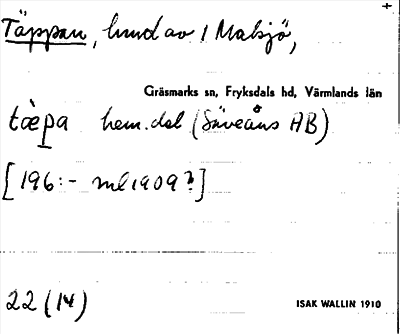 Täppan, lund av 1 Malsjö,
Gräsmarks sn, Fryksdals hd, Värmlands län
tæ̀pa hem.del (Säveåns AB)
[196:- ml 1909?]
22 (14)
ISAK WALLIN 1910